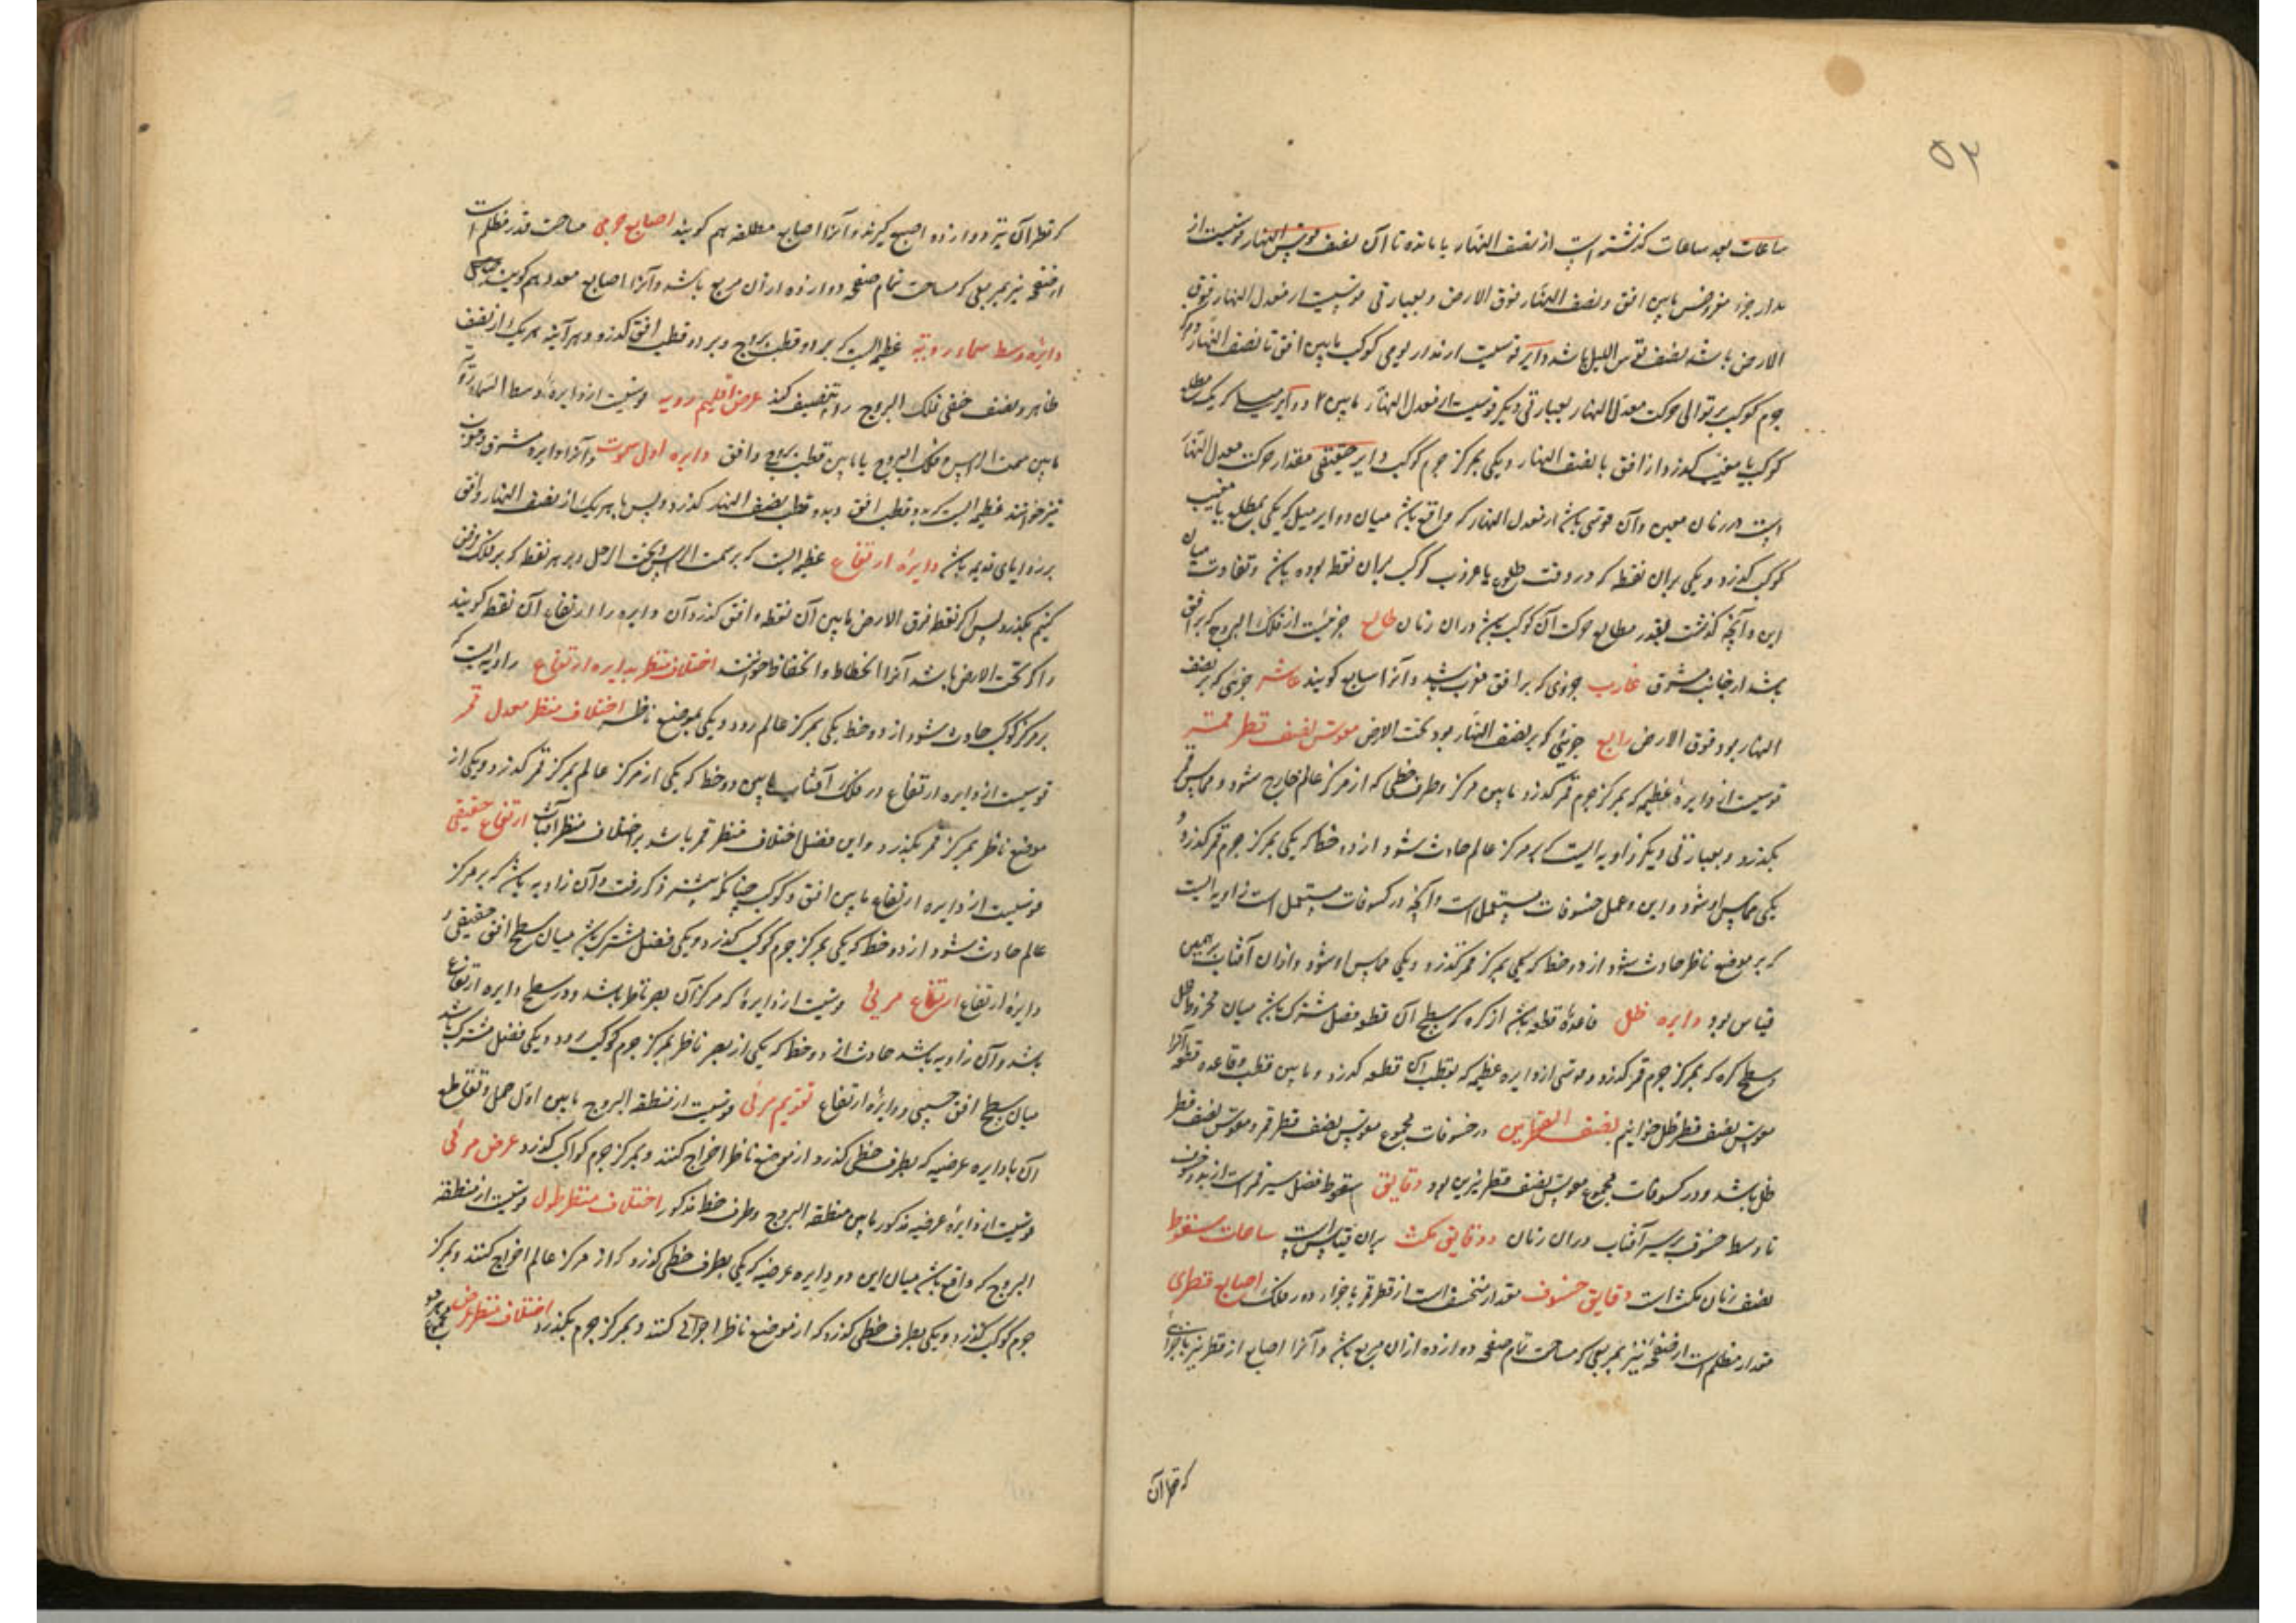 ۵۳
ساعات بعد ساعات گذشته است از نصف النهار یا مانده تا آن نصف قوس النهار قوسیست از
مدار جزء مفروض مابین افق و نصف النهار فوق الارض و بعبارتی قوسیست از معدل النهار فوق
الارض باشد نصف قوس اللیل باشد دایر قوسیست از مدار یومی کوکب مابین افق تا نصف النهار
جرم کوکب بر توالی حرکت معدل النهار بعبارتی دیگر قوسیست از معدل النهار مابین ۲ دوایر میل که یک بمطلع
کوکب یا مغیب گذرد از افق یا نصف النهار و یکی بمرکز جرم کوکب دایر حقیقی مقدار حرکت معدل النهار
است در زمان معین و آن قوسی باشد از معدل النهار که واقع باشد میان دو دایر میل که یکی بمطلع یا مغیب
کوکب گذرد و یکی بران نقطه که در وقت طلوع یا غروب کوکب بران نقطه بوده باشد و تفاوت میان
این و آنچه گذشت بقدر مطالع حرکت آن کوکب باشد دران زمان طالع جزئیست از فلک البروج که بر افق
باشد از جانب مشرق غارب جزوی که بر افق مغرب باشد و آنرا سابع گویند عاشر جزئی که بر نصف
النهار بود فوق الارض رابع جزئی که بر نصف النهار بود تحت الارض قوس نصف قطر قمر
قوسیست از دایره عظیمه که بمرکز جرم قمر گذرد مابین مرکز و طرف خطی که از مرکز عالم خارج شود و مماس قمر
بگذرد و بعبارتی دیگر زاویه ایست که بر مرکز عالم حادث شود از دو خط که یکی بمرکز جرم قمر گذرد و
یکی مماس او شود و این در عمل خسوفات مستعمل است و آنچه در کسوفات مستعمل است زاویه ایست
که بر موضع ناظر حادث شود از دو خط که یکی بمرکز قمر گذرد و یکی مماس او شود و ازان آفتاب برهمین
قیاس بود دایره ظل قاعدهٔ قطعه باشد از کره که سطح آن قطع فصل مشترک باشد میان مخروط ظل
و سطح کره که بمرکز جرم قمر گذرد و قوسی از دایره عظیمه که بقطب آن قطعه گذرد و مابین قطب و قاعده قطعه باشد آنرا
قوس نصف قطر ظل خوانیم نصف القطرین در خسوفات مجموع قوس نصف قطر قمر و قوس نصف قطر
ظل باشد و در کسوفات مجموع قوس نصف قطر نیرین بود دقایق سقوط فضل سیر قمر است از بدو خسوف
تا وسط خسوف بر سیر آفتاب دران زمان و دقایق مکث بران قیاس است ساعات سقوط
نصف زمان مکث است دقایق خسوف مقدار منخسف است از قطر قمر باجزاء دور فلک اصابع قطری
مقدار مظلم است از صفحه نیر بمربعی که مساحت تمام صفحه دوازده ازان مربع باشد و آنرا اصابع از قطر نیر باجزای
که قطر آن
که قطر آن نیز دوازده اصبع گیرند و آنرا اصابع مطلقه هم گویند اصابع جرمی مساحت قدر مظلم است
از صفحه نیر بمربعی که مساحت تمام صفحه دوازده ازان مربع باشد و آنرا اصابع معدله هم گویند
دایرهٔ وسط سماء رویه عظیمه ایست که بر دو قطب بروج و بر دو قطب افق گذرد و هر آینه هر یک از نصف
ظاهر و نصف خفی فلک البروج را تنصیف کند عرض اقلیم رویه قوسیست از دایرهٔ وسط السماء رویه
مابین سمت الراس و فلک البروج یا مابین قطب بروج و افق دایره اول سموت و آنرا دایره مشرق و مغرب
نیز خوانند عظیمه ایست که بدو قطب افق و بدو قطب نصف النهار گذرد و پس با هر یک از نصف النهار و افق
بر زوایای قایمه باشد دایرهٔ ارتفاع عظیمه ایست که بر سمت الراس و تحت الرجل و بر هر نقطه که بر فلک فرض
کنیم بگذرد پس اگر نقطه فوق الارض مابین آن نقطه و افق گذرد آن دایره را ارتفاع آن نقطه گویند
و اگر تحت الارض باشد آنرا انحطاط و انخفاض خوانند اختلاف منظر بدایره ارتفاع زاویه ایست که
بر مرکز کوکب حادث شود از دو خط یکی بمرکز عالم رود و یکی بموضع ناظر اختلاف منظر معدل قمر
قوسیست از دایره ارتفاع در فلک آفتاب مابین دو خط که یکی از مرکز عالم بمرکز قمر گذرد و یکی از
موضع ناظر بمرکز قمر بگذرد و این فضل اختلاف منظر قمر باشد بر اختلاف منظر آفتاب ارتفاع حقیقی
قوسیست از دایره ارتفاع مابین افق و کوکب چنانکه پیشتر ذکر رفت و آن زاویه باشد که بر مرکز
عالم حادث شود از دو خط که یکی بمرکز جرم کوکب گذرد و یکی فصل مشترک باشد میان سطح افق حقیقی و
دایرهٔ ارتفاع ارتفاع مرئی قوسیست از دایرهٔ که مرکز آن بصر ناظر باشد و در سطح دایره ارتفاع
باشد و آن زاویه باشد حادث از دو خط که یکی از بصر ناظر بمرکز جرم کوکب رود و یکی فصل مشترک باشد
میان سطح افق حسی و دایرهٔ ارتفاع تقویم مرئی قوسیست از منطقه البروج مابین اول حمل و تقاطع
آن با دایره عرضیه که بطرف خطی گذرد از موضع ناظر اخراج کنند و بمرکز جرم کواکب گذرد عرض مرئی
قوسیست از دایرهٔ عرضیه مذکور مابین منطقه البروج و طرف خط مذکور اختلاف منظر طول قوسیست از منطقه
البروج که واقع باشد میان این دو دایره عرضیه که یکی بطرف خطی گذرد که از مرکز عالم اخراج کنند و بمرکز
جرم کوکب گذرد و یکی بطرف خطی گذرد که از موضع ناظر اخراج کنند و بمرکز جرم بگذرد اختلاف منظر عرض